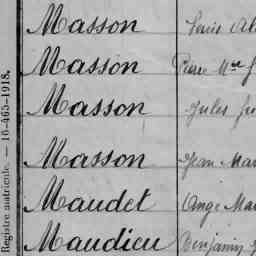 Registre matricule. — 16-465-1918.
Masson Louis
Masson Pierre Mie
Masson Jules
Masson Jean Mar
Maudet Ange Mar
Maudieu Benjamin